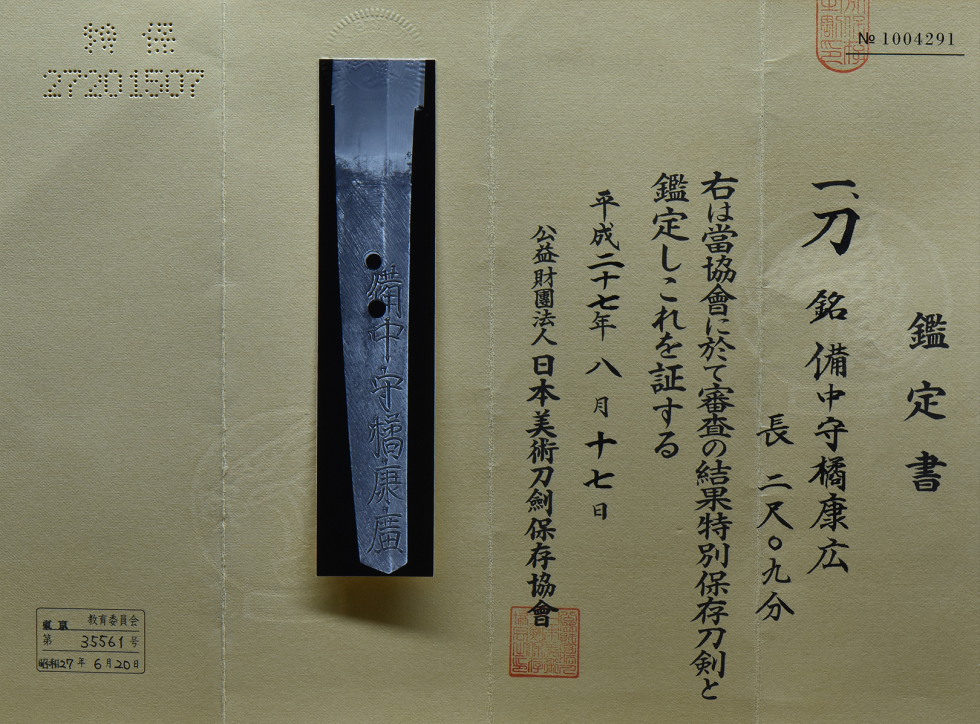 № 1004291
鑑定書
一、刀 銘 備中守橘康広
長 二尺〇九分
右は當協會に於て審査の結果特別保存刀剣と
鑑定しこれを証する
平成二十七年八月十七日
公益財團法人 日本美術刀劍保存協會
備中守橘康廣
特保
27201507
東京 教育委員会
第 35561 号
昭和27年 6月20日